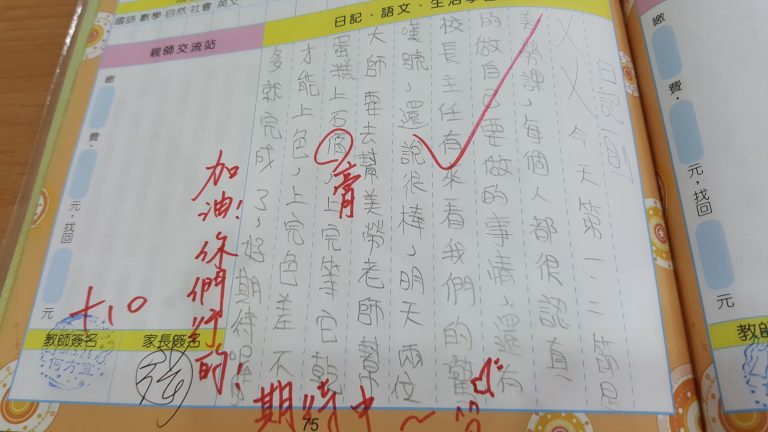 國語 數學 自然 社會 英文
日記、語文、生活學
親師交流站
繳
費,
元,找回
元
繳
費,
元,找回
元
日記一則
ㄨㄨ今天第一、二節是
美勞課,每個人都很認真
的做自己要做的事情,還有
校長主任有來看我們的
嘆號,還說很棒,明天兩位
大師要去幫美勞老師幫
蛋糕上石膏,上完等它乾
才能上色,上完色差不
多就完成了,好期待
膏
加油!你們行的!
期待中~
+10
教師簽名
家長簽名
75
教師